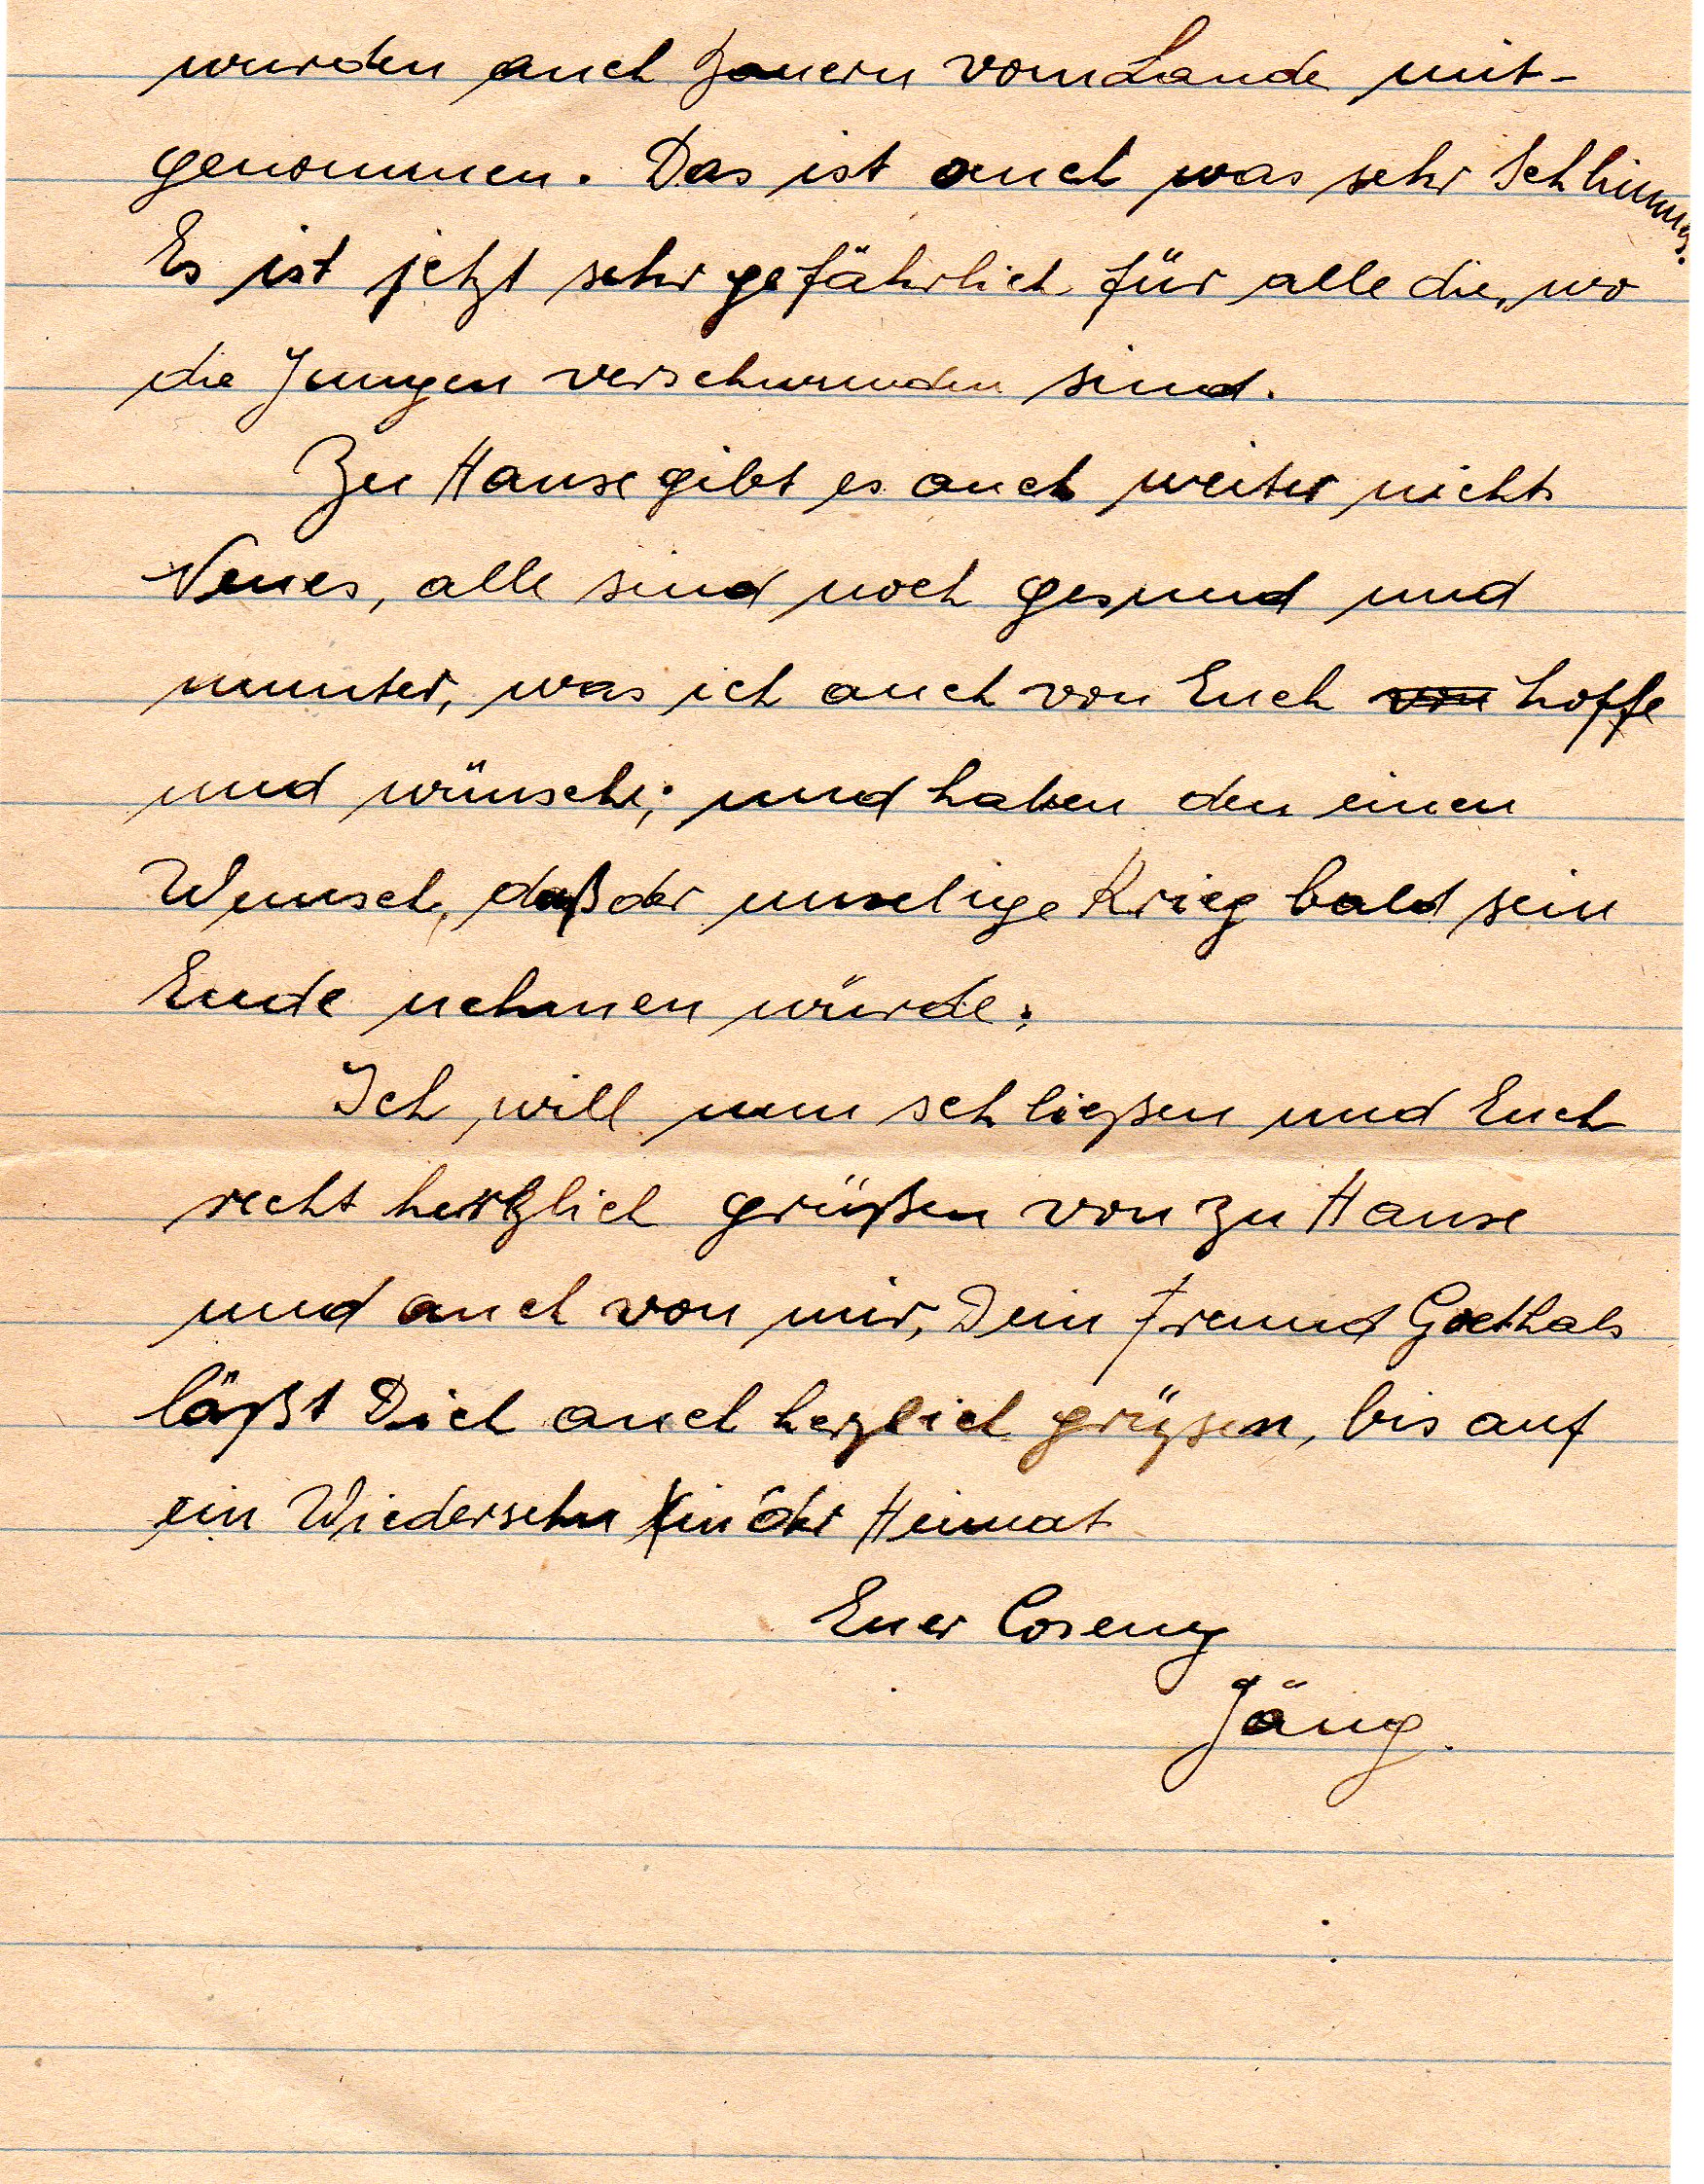 wurden auch Bauern vom Lande mit-
genommen. Das ist auch was sehr Schlimmes.
Es ist jetzt sehr gefährlich für alle die, wo
die Jungen verschwunden sind.
Zu Hause gibt es auch weiter nichts
Neues, alle sind noch gesund und
munter, was ich auch von Euch von hoffe
und wünsche; und haben den einen
Wunsch, daß der unselige Krieg bald sein
Ende nehmen würde.
Ich will nun schließen und Euch
recht herzlich grüßen von zu Hause
und auch von mir, Dein Freund Goethals
läßt Dich auch herzlich grüßen, bis auf
ein Wiedersehn in der Heimat
Euer Coseng
Jäng.